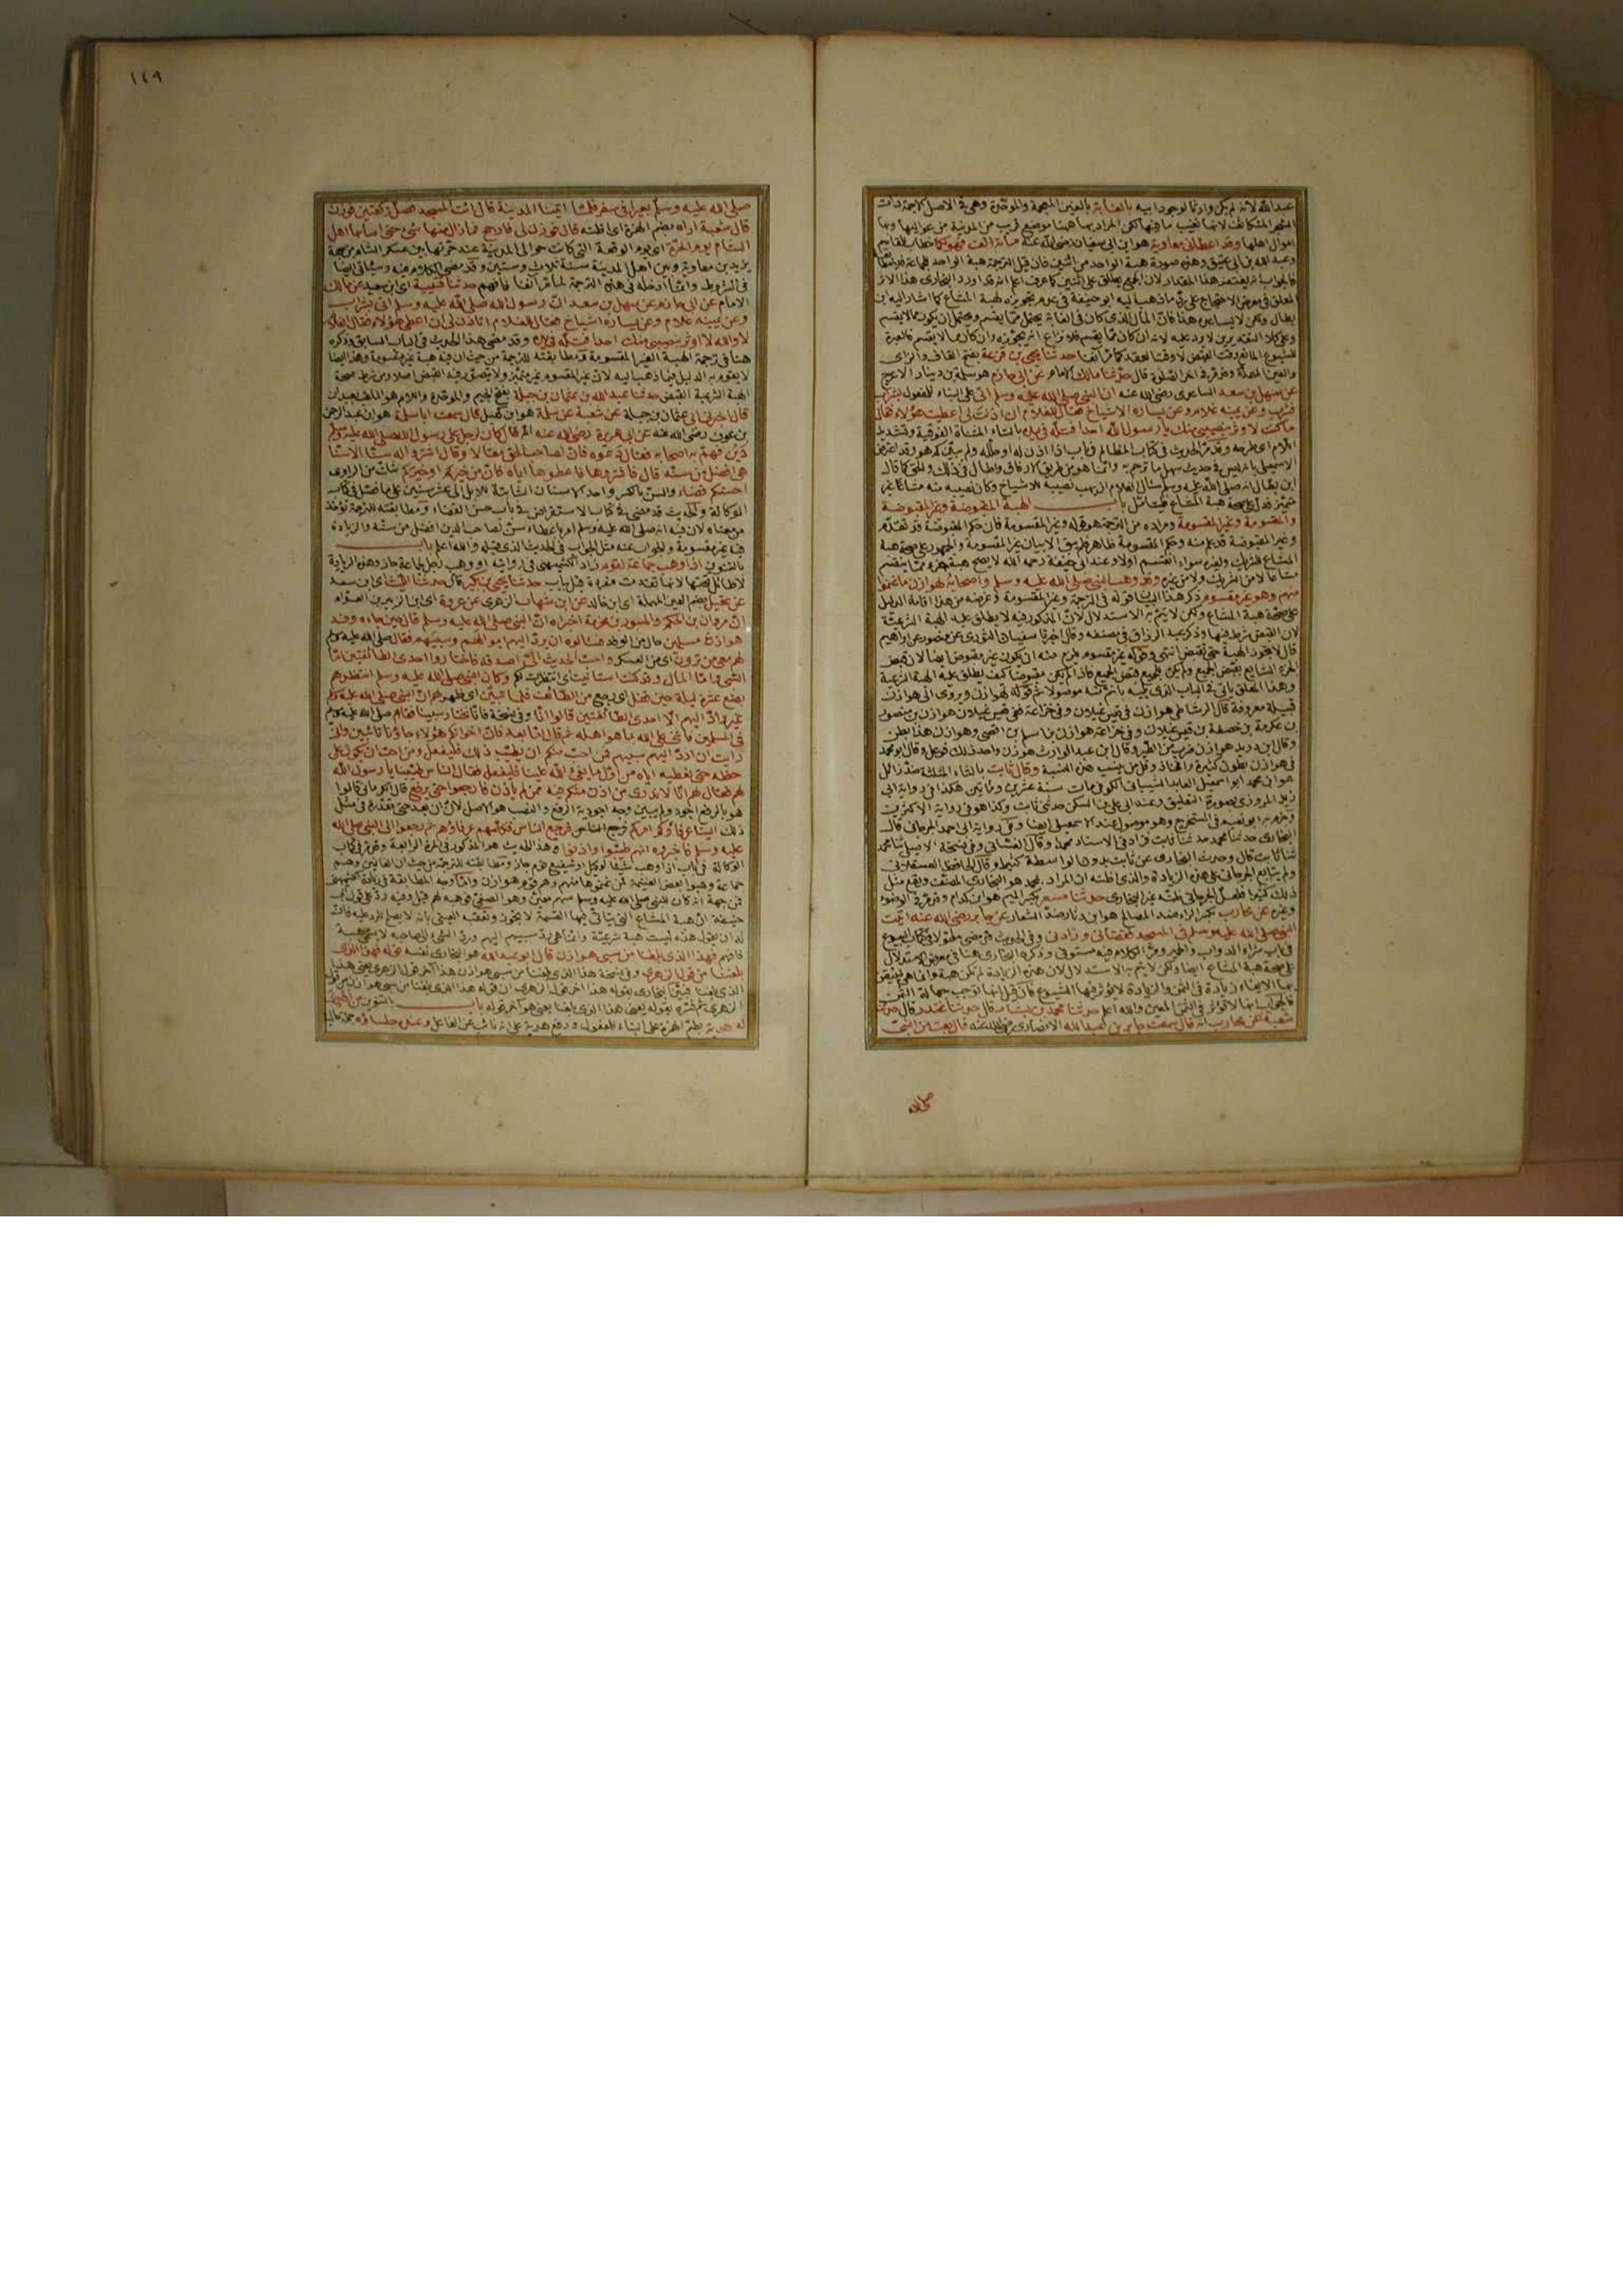 عبد الله لانه لم يكن وارثا لوجود ابيه بالغابة بالغين المعجمة والموحدة وهى فى الاصل الاجمة ذات
الشجر المتكاثف لانها تغيب ما فيها لكن المراد بها هاهنا موضع قريب من المدينة من عواليها وبها
اموال اهلها وقد اعطانى معاوية هو ابن ابى سفيان رضى الله عنه مائة الف فهو لكما خطاب للقاسم
وعبد الله بن ابى عتيق وهذه صورة هبة الواحد من اثنين فان قيل الترجمة هبة الواحد للجماعة
فالجواب انه يغتفر هذا المقدار لان الجمع يطلق على اثنين كما عرف اعلم انه قد اورد البخارى هذا الاثر
المعلق فى معرض الاحتجاج على رد ما ذهب اليه ابو حنيفة فى عدم تجويزه لهبة المشاع كما اشار اليه ابن
بطال ولكن لا يساعده هذا فان المال الذى كان فى الغابة يحتمل مما يقسم ويحتمل ان يكون مما لا يقسم
وعلى كلا التقديرين لا يرد عليه لانه ان كان مما يقسم فلا نزاع انه يجوزه وان كان مما لا يقسم فالعبرة
للشيوع المانع وقت القبض لا وقت العقد كما مر آنفا حدثنا يحيى بن قزعة بفتح القاف والزاى
والعين المهملة وقد مر فى آخر الصلوة قال حدثنا مالك الامام عن ابى حازم هو سلمة بن دينار الاعرج
عن سهل بن سعد الساعدى رضى الله عنه ان النبى صلى الله عليه وسلم اتى على البناء للمفعول بشراب
فشرب وعن يمينه غلام وعن يساره الاشياخ فقال للغلام ان اذنت لى اعطيت هؤلاء فقال
ما كنت لاوثر بنصيبى منك يا رسول الله احدا فتله فى يده بالتاء المثناة الفوقية وتشديد
اللام اى طرحه وقد مر الحديث فى كتاب المظالم فى باب اذا اذن له او حلله ولم يبين كم هو وقد اعترض
الاسمعيلى بانه ليس فى حديث سهل ما ترجم به وانما هو من طريق الارفاق واطال فى ذلك والحق كما قال
ابن بطال انه صلى الله عليه وسلم سأل الغلام ان يهب نصيبه للاشياخ وكان نصيبه منه مشاعا غير
متميز فدل على صحة هبة المشاع فليتأمل باب الهبة المقبوضة وغير المقبوضة
والمقسومة وغير المقسومة ومراده من الترجمة هو قوله وغير المقسومة فان حكم المقبوضة قد تقدم
وغير المقبوضة قد علم منه وحكم المقسومة ظاهر فلم يبق الا بيان غير المقسومة والجمهور على صحة هبة
المشاع للشريك ولغيره سواء انقسم اولا وعند ابى حنيفة رحمه الله لا يصح هبة جزء مما ينقسم
مشاعا لا من الشريك ولا من غيره وقد وهب النبى صلى الله عليه وسلم واصحابه لهوازن ما غنموا
منهم وهو غير مقسوم ذكر هذا لبيان قوله فى الترجمة وغير المقسومة وغرضه من هذا اقامة الدليل
على صحة هبة المشاع ولكن لا يتم به الاستدلال لان المذكور فيه لا يطلق عليه الهبة الشرعية
لان القبض شرط فيها وذكر عبد الرزاق فى مصنفه وقال اخبرنا سفيان الثورى عن منصور عن ابراهيم
قال لا يجوز الهبة حتى تقبض انتهى وقوله غير مقسوم يلزم منه ان يكون غير مقبوض ايضا لان قبض
الجزء الشايع بقبض الجميع ولم يكن للجميع قبض الجميع فاذا لم يكن مقبوضا كيف يطلق عليه الهبة الشرعية
وهذا المعلق ياتى فى الباب الذى يليه باتم منه موصولا ثم قوله لهوازن ويروى الى هوازن
قبيلة معروفة قال الرشاطى هوازن فى قيس غيلان وفى خزاعة ففى قيس غيلان هوازن بن منصور
بن عكرمة بن خصفة بن قيس غيلان وفى خزاعة هوازن بن اسلم بن افصى وهوازن هذا بطن
وقال ابن دريد هوازن ضرب من الطير وقال ابن عبد الوارث هوزن واحد ذلك فوعل وقال ابو محمد
فى هوازن بطون كثيرة وافخاذ وقل من ينسب هذه النسبة وقال ثابت بالثاء المثلثة ضد زائل
هو ابن محمد ابو اسمعيل العابد الشيبانى الكوفى مات سنة عشرين ومائتين هكذا فى رواية ابى
زيد المروزى بصورة التعليق وعند ابى على بن السكن حدثنى ثابت وكذا هو فى رواية الاكثرين
وجزم به ابو نعيم فى المستخرج وهو موصول عند الاسمعيلى ايضا وفى رواية ابى احمد الجرجانى قال
البخارى حدثنا محمد حدثنا ثابت فزاد فى الاسناد محمدا وقال الغسانى وفى نسخة الاصيلى ثنا محمد
ثنا ثابت قال وحدث البخارى عن ثابت بدون الواسطة كثيرا وقال الحافظ العسقلانى
ولم يتابع الجرجانى على هذه الزيادة والذى اظنه ان المراد بمحمد هو البخارى المصنف ويقع مثل
ذلك كثيرا فلعل الجرجانى ظنه غير البخارى حدثنا مسعر بكسر الميم هو ابن كدام وقد مر فى الوضوء
وغيره عن محارب بكسر الراء ضد المصالح هو ابن دثار ضد الشعار عن جابر رضى الله عنه اتيت
النبى صلى الله عليه وسلم فى المسجد فقضانى وزادنى وفى الحديث قد مضى مطولا فى كتاب البيوع
فى باب شراء الدواب والحمير ومر الكلام فيه مستوفى وذكره البخارى هنا فى معرض الاستدلال
على صحة هبة المشاع ايضا ولكن لا يتم به الاستدلال لان هذه الزيادة لم تكن هبة وانما هى لتيقن
بها الايفاء زيادة فى الثمن والزيادة لا يؤثر فيها الشيوع فان قيل انها توجب جهالة الثمن
فالجواب انها لا تؤثر فى الثمن المعين والله اعلم حدثنا محمد بن بشار قال حدثنا غندر قال حدثنا
شعبة عن محارب انه قال سمعت جابر بن عبد الله الانصارى رضى الله عنه قال بعت من النبى
١٤٩
صلى الله عليه وسلم بعيرا فى سفر فلما اتينا المدينة قال ائت المسجد فصل ركعتين فوزن
قال شعبة اراه بضم الهمزة اى اظنه قال فوزن لى فارجح فما زال منها شئ حتى اصابها اهل
الشام يوم الحرة اى يوم الوقعة التى كانت حوالى المدينة عند حرتها بين عسكر الشام من جهة
يزيد بن معاوية وبين اهل المدينة سنة ثلاث وستين وقد مضى الكلام فيه وسيأتى ايضا
فى الشروط وانما ادخله فى هذه الترجمة لما مر آنفا فافهم حدثنا قتيبة اى ابن سعيد عن مالك
الامام عن ابى حازم عن سهل بن سعد ان رسول الله صلى الله عليه وسلم اتى بشراب
وعن يمينه غلام وعن يساره اشياخ فقال للغلام اتأذن لى ان اعطى هؤلاء فقال الغلام
لا والله لا اوثر بنصيبى منك احدا فتله فى يده وقد مضى هذا الحديث فى الباب السابق وذكره
هنا فى ترجمة الهبة الغير المقسومة ومطابقته للترجمة من حيث ان فيه هبة غير مقسومة وهذا ايضا
لا يقوم به الدليل فيما ذهب اليه لان غير المقسوم غير متميز ولا يتصور فيه القبض اصلا ومن شرط صحة
الهبة الشرعية القبض حدثنا عبد الله بن عثمان بن جبلة بفتح الجيم والموحدة واللام هو الملقب بعبدان
قال اخبرنى ابى عثمان بن جبلة عن شعبة عن سلمة هو ابن كهيل قال سمعت ابا سلمة هو ابن عبد الرحمن
بن عوف رضى الله عنه عن ابى هريرة رضى الله عنه انه قال كان لرجل على رسول الله صلى الله عليه وسلم
دين فهم به اصحابه فقال دعوه فان لصاحب الحق مقالا وقال اشتروا له سنا الا سنا
هى افضل من سنه قال فاشتروها فاعطوها اياه فان من خيركم او خيركم شك من الراوى
احسنكم قضاء والسن بالكسر واحد الاسنان الثابتة للابل الى عشر سنين على ما فصل فى كتاب
الوكالة والحديث قد مضى فى كتاب الاستقراض فى باب حسن القضاء ومطابقته للترجمة تؤخذ
من معناه لان فيه انه صلى الله عليه وسلم امر باعطاء سن لصاحب الدين افضل من سنه والزيادة
فيه غير مقسومة والجواب عنه مثل الجواب فى الحديث الذى قبله والله اعلم باب
بالتنوين اذا وهب جماعة لقوم زاد الكشميهنى فى روايته او وهب رجل لجماعة جاز وهذه الزيادة
لا طائل تحتها لانها تقدمت مفردة قبل بباب حدثنا يحيى بن بكير قال حدثنا الليث اى ابن سعد
عن عقيل بضم العين المهملة اى ابن خالد عن ابن شهاب الزهرى عن عروة اى ابن الزبير بن العوام
ان مروان بن الحكم والمسور بن مخرمة اخبراه ان النبى صلى الله عليه وسلم قال حين جاءه وفد
هوازن مسلمين حال من الوفد فسألوه ان يرد اليهم اموالهم وسبيهم فقال صلى الله عليه وسلم
لهم معى من ترون اى من العسكر واحب الحديث الى اصدقه فاختاروا احدى الطائفتين اما
السبى واما المال وقد كنت استأنيت اى انتظرت بكم وكان النبى صلى الله عليه وسلم انتظرهم
بضع عشرة ليلة حين قفل اى رجع من الطائف فلما تبين اى ظهر لهم ان النبى صلى الله عليه وسلم
غير راد اليهم الا احدى الطائفتين قالوا انا وفى نسخة فانا نختار سبينا فقام صلى الله عليه وسلم
فى المسلمين فاثنى على الله بما هو اهله ثم قال اما بعد فان اخوانكم هؤلاء جاؤنا تائبين وانى
رأيت ان ارد اليهم سبيهم فمن احب منكم ان يطيب ذلك فليفعل ومن احب ان يكون على
حظه حتى نعطيه اياه من اول ما يفئ الله علينا فليفعل فقال الناس طيبنا يا رسول الله
لهم فقال لهم انا لا ندرى من اذن منكم فيه ممن لم يأذن فارجعوا حتى يرفع قال الكرمانى قالوا
هو بالرفع اجود ولم يبين وجه اجودية الرفع والنصب هو الاصل لان ان بعد حتى مقدرة فى مثل
ذلك الينا عرفاؤكم امركم فرجع الناس فرجع الناس فكلمهم عرفاؤهم ثم رجعوا الى النبى صلى الله
عليه وسلم فاخبروه انهم طيبوا واذنوا وهذا الحديث هو المذكور فى المرة الرابعة وقد مر فى كتاب
الوكالة فى باب اذا وهب شيئا لوكيل او شفيع قوم جاز ومطابقته للترجمة من حيث ان الغانمين وهم
جماعة وهبوا بعض الغنيمة لمن غنموها منهم وهم قوم هوازن واما وجه المطابقة فى زيادة الكشميهنى
فمن جهة انه كان للنبى صلى الله عليه وسلم سهم معين وهو الصفى فوهبه لهم قيل وفيه رد على قول ابى
حنيفة ان هبة المشاع التى يتأتى فيها القسمة لا يجوز وتعقبه العينى بانه لا يصلح للرد عليه فان
له ان يقول هذه ليست هبة شرعية وانما هى رد سبيهم اليهم ورد الشئ الى صاحبه لا يسمى هبة
فافهم فهذا الذى بلغنا من سبى هوازن قال ابو عبد الله هو البخارى نفسه قوله فهذا الذى
بلغنا من قول الزهرى وفى نسخة هذا الذى بلغنا من سبى هوازن هذا آخر قول الزهرى يعنى هذا
الذى بلغنا فبين البخارى بقوله هذا آخر قول الزهرى ان قوله هذا الذى بلغنا من سبى هوازن من قول
الزهرى ثم فسره بقوله يعنى هذا الذى بلغنا يعنى هو آخر قوله باب بالتنوين من اهدى
له هدية بضم الهمزة على البناء للمفعول ورفع هدية على انه نائب عن الفاعل وعنده جلساؤه جملة حالية